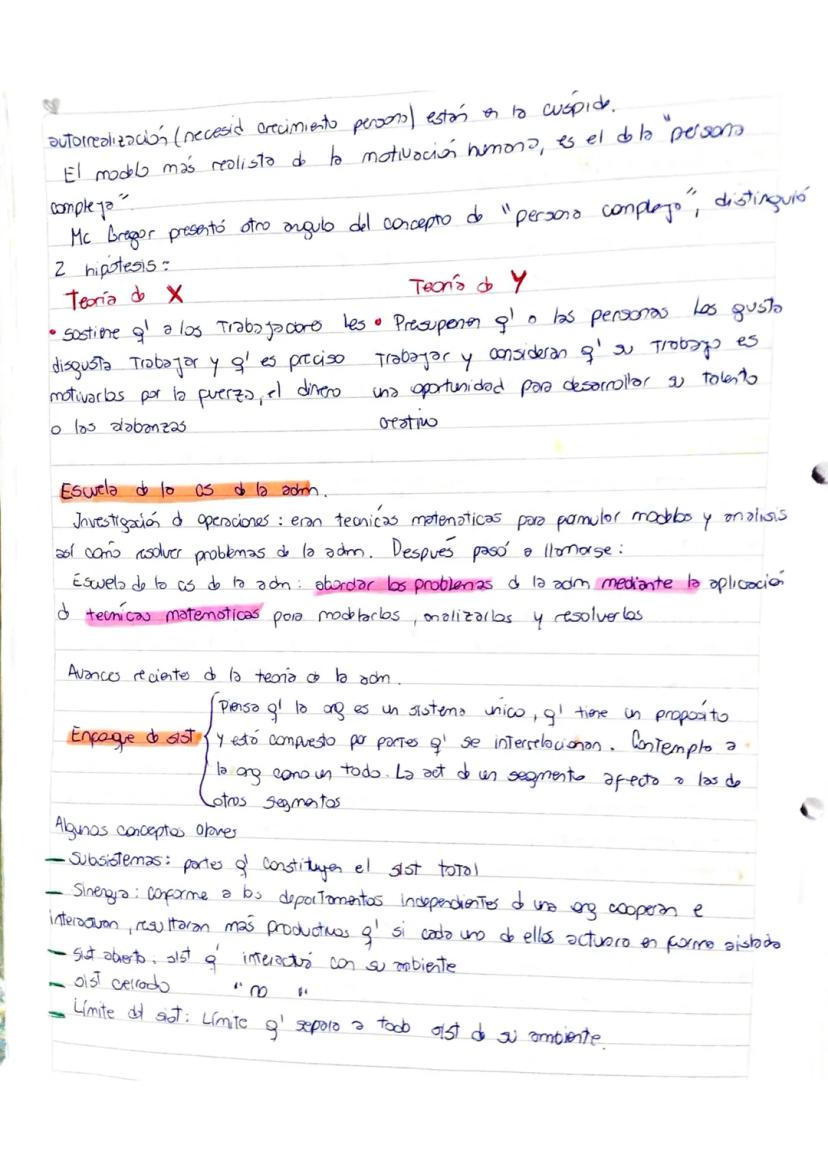 autorrealización (necesid crecimiento personal) están en la cúspide.
El modelo más realista de la motivación humana, es el de la "persona
compleja".
Mc Gregor presentó otro angulo del concepto de "persona compleja", distinguió
2 hipótesis:
Teoría de X
Teoría de Y
• sostiene q' a los Trabajadores les disgusta Trabajar y q' es preciso
motivarlos por la fuerza, el dinero
o las alabanzas
• Presuponen q' a las personas les gusta
Trabajar y consideran q' su Trabajo es
una oportunidad para desarrollar su talento
creativo
Escuela de la cs de la adm.
Investigación d operaciones: eran tecnicas matematicas para formular modelos y analisis
así como resolver problemas de la adm. Después pasó a llamarse:
Escuela de la cs de la adm: abordar los problemas d la adm mediante la aplicación
d tecnicas matematicas para modelarlos, analizarlos y resolverlos
Avances reciente de la teoría de la adm.
Enfoque de sist
Piensa q' la org es un sistema unico, q' tiene un proposito
y está compuesto por partes q' se interrelacionan. Contempla a
la org como un todo. La act de un segmento afecta a las de
otros segmentos
Algunos conceptos claves
– Subsistemas: partes q' constituyen el sist total
– Sinergia: conforme a los departamentos independientes d una org cooperan e
interactuan, resultaran más productivos q' si cada uno de ellos actuara en forma aislada
– sist abierto, sist q' interactuá con su ambiente
– sist cerrado " no "
– Límite del sist: Límite q' separa a todo sist de su ambiente.